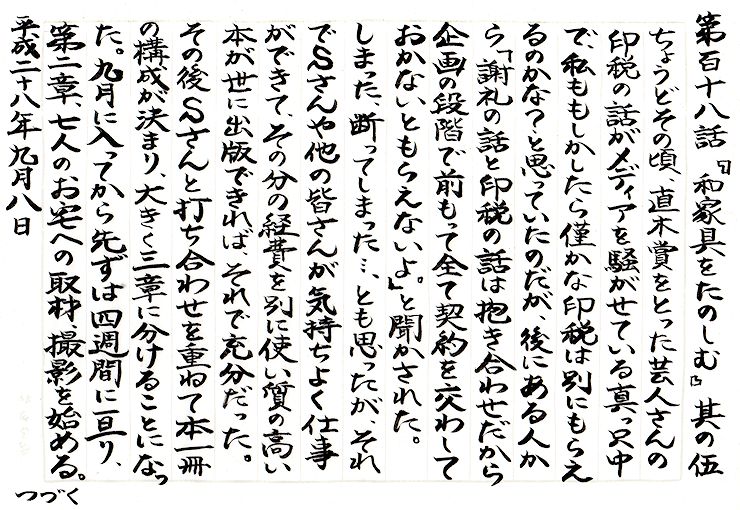 第百十八話『和家具をたのしむ』其の伍
ちょうどその頃、直木賞をとった芸人さんの
印税の話がメディアを騒がせている真っ只中
で、私ももしかしたら僅かな印税は別にもらえ
るのかな?と思っていたのだが、後にある人か
ら「謝礼の話と印税の話は抱き合わせだから
企画の段階で前もって全て契約を交わして
おかないともらえないよ。」と聞かされた。
しまった、断ってしまった…、とも思ったが、それ
でSさんや他の皆さんが気持ちよく仕事
ができて、その分の経費を別に使い質の高い
本が世に出版できれば、それで充分だった。
その後Sさんと打ち合わせを重ねて本一冊
の構成が決まり、大きく三章に分けることになっ
た。九月に入ってから先ずは四週間に亘り、
第二章、七人のお宅への取材、撮影を始める。
平成二十八年九月八日
つづく